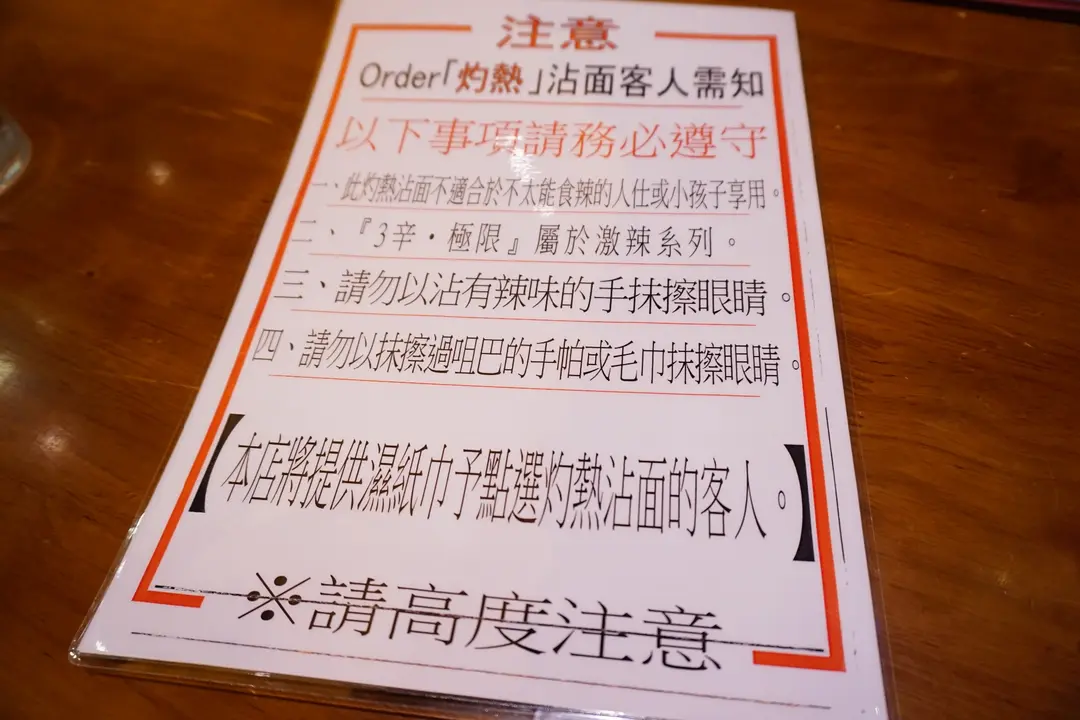 注意
Order「灼熱」沾面客人需知
以下事項請務必遵守
一、此灼熱沾面不適合於不太能食辣的人仕或小孩子享用。
二、『3辛・極限』屬於激辣系列。
三、請勿以沾有辣味的手抹擦眼睛。
四、請勿以抹擦過咀巴的手帕或毛巾抹擦眼睛。
【本店將提供濕紙巾予點選灼熱沾面的客人。】
※請高度注意